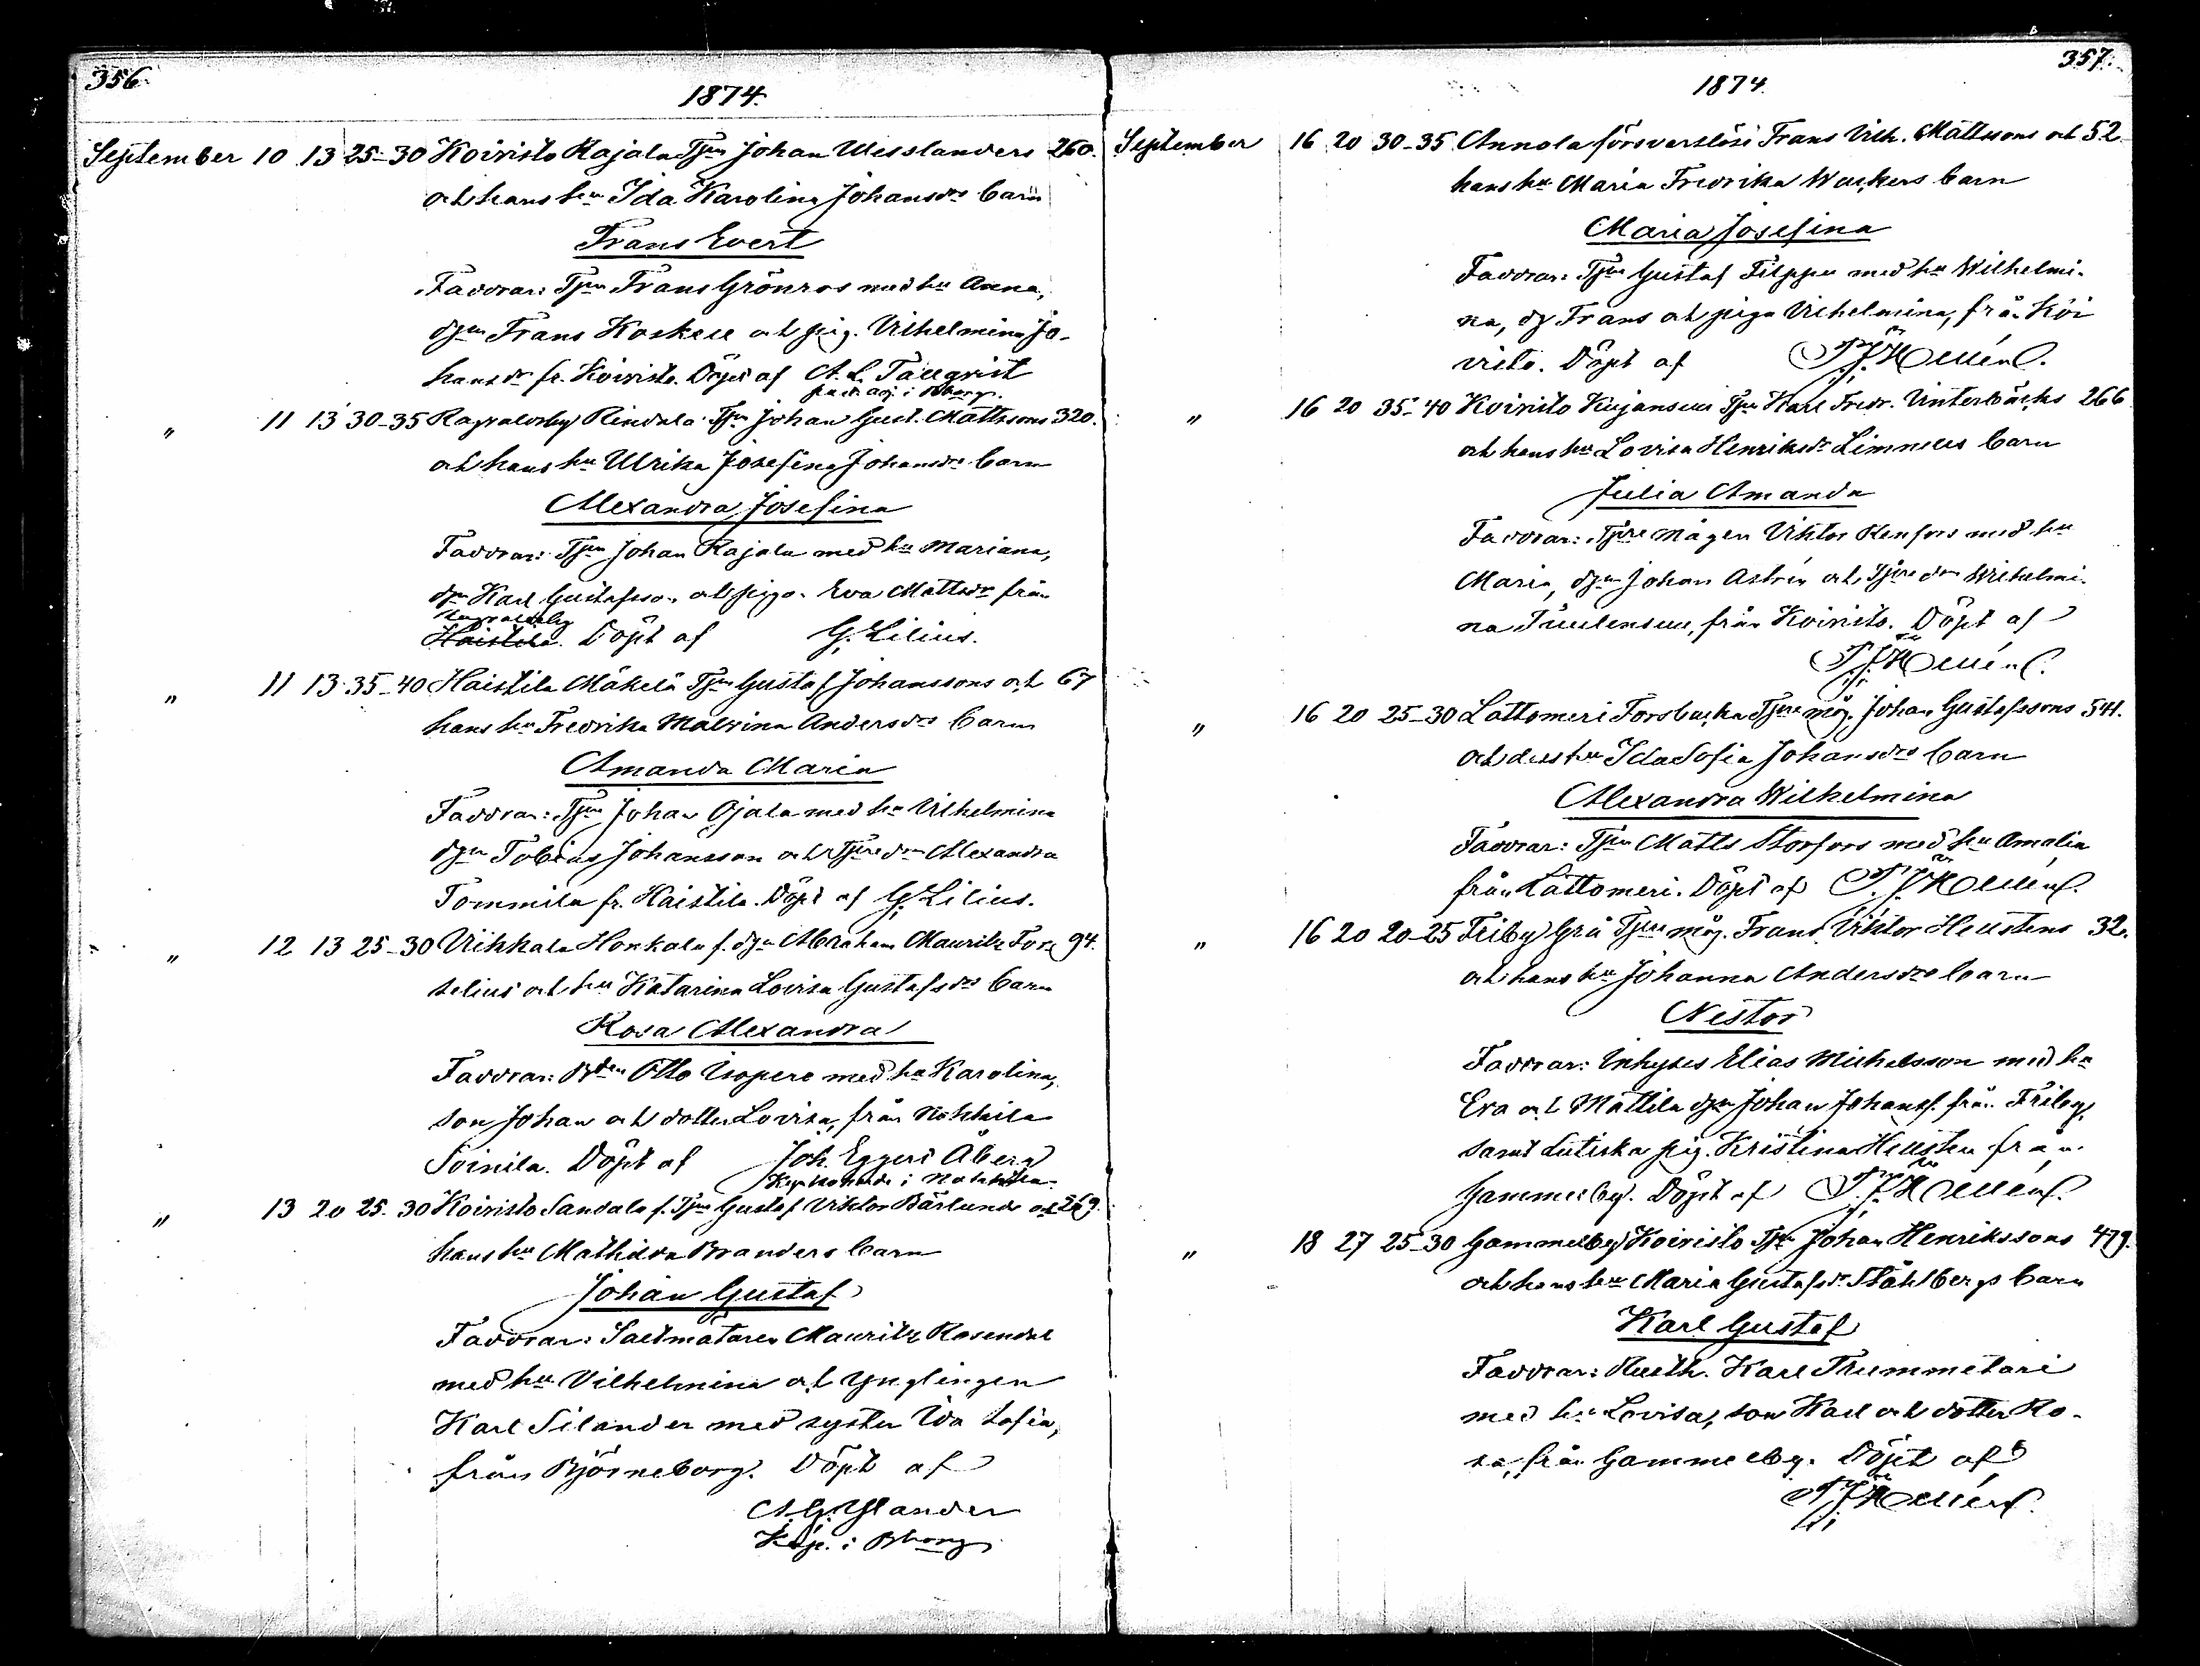 356.
1874.
September 10 13 25-30 Koivisto Rajala Tjen Johan Wesslanders 260.
och hans hu Ida Karolina Johansdrs barn
Frans Evert
Faddrar: Tjen Frans Grönros med hu Anna,
djen Frans Koskell och pig. Vilhelmina Jo-
hansdr fr. Koivisto. Döpt af A. L. Tallqvist
past. adj. i Bborg.
" 11 13 30-35 Ragvaldsby Rindala Tjen Johan Gust. Mattssons 320.
och hans hu Ulrika Josefina Johansdrs barn
Alexandra Josefina
Faddrar: Tjen Johan Rajala med hu Mariana,
djen Karl Gustafsson och piga Eva Mattsdr från
Ragvaldsby
Haistila. Döpt af G. Lilius.
" 11 13 35-40 Haistila Mäkelä Tjen Gustaf Johanssons och 67
hans hu Fredrika Malvina Andersdrs barn
Amanda Maria
Faddrar: Tjen Johan Ojala med hu Vilhelmina
djen Tobias Johansson och Tjen dn Alexandra
Tommila fr. Haistila. Döpt af G. Lilius.
" 12 13 25-30 Vikkala Honkala f. djn Abraham Mauritz Fors 94.
selius och hu Katarina Lovisa Gustafsdrs barn
Rosa Alexandra
Faddrar: Bden Otto Isopere med hu Karolina,
son Johan och dotter Lovisa, från Nakkila
Soinila. Döpt af Joh. Eggert Åberg
Kaplan i Nakkila
" 13 20 25-30 Koivisto Sandala f. Tjen Gustaf Viktor Bärlunds och 269.
hans hu Mathilda Branders barn
Johan Gustaf
Faddrar: Saltmätaren Mauritz Rosendal
med hu Vilhelmina och Ynglingen
Karl Silander med syster Ida Sofia,
från Björneborg. Döpt af
A. G. Ylander
Kap. i Bborg
357.
1874.
September 16 20 30-35 Annola försvarslöse Frans Vilh. Mattssons och 52
hans hu Maria Fredrika Wackers barn
Maria Josefina
Faddrar: Tjen Gustaf Filppu med hu Wilhelmi-
na, dj Frans och piga Vilhelmina, från Koi
visto. Döpt af F. J. Hellén.
" 16 20 35-40 Koivisto Kujansuu Tjen Karl Fredr. Vinterbäcks 266
och hans hu Lovisa Henriksdr Limnells barn
Julia Amanda
Faddrar: Tjens mågen Viktor Renfors med hu
Maria, djen Johan Astrén och Tjens dn Wilhelmi-
na Tuulensuu, från Koivisto. Döpt af
F. J. Hellén.
" 16 20 25-30 Lattomeri Forsbacka Tjens måg. Johan Gustafssons 541.
och dess hu Ida Sofia Johansdrs barn
Alexandra Wilhelmina
Faddrar: Tjen Matts Storfors med hu Amalia
från Lattomeri. Döpt af F. J. Hellén.
" 16 20 20-25 Friby Grå Tjens måg. Frans Viktor Hellstens 32.
och hans hu Johanna Andersdrs barn
Nestor
Faddrar: Inhyses Elias Michelsson med hu
Eva och Mattila djn Johan Johanss. från Friby,
samt Lutiska pig. Kristina Hellsten från
Gammelby. Döpt af F. J. Hellén.
" 18 27 25-30 Gammelby Koivisto Tjn Johan Henrikssons 479.
och hans hu Maria Gustafsdr Ståhlbergs barn
Karl Gustaf
Faddrar: Rusth. Karl Trummetari
med hu Lovisa, son Karl och dotter Ro-
sa, från Gammelby. Döpt af
F. J. Hellén.